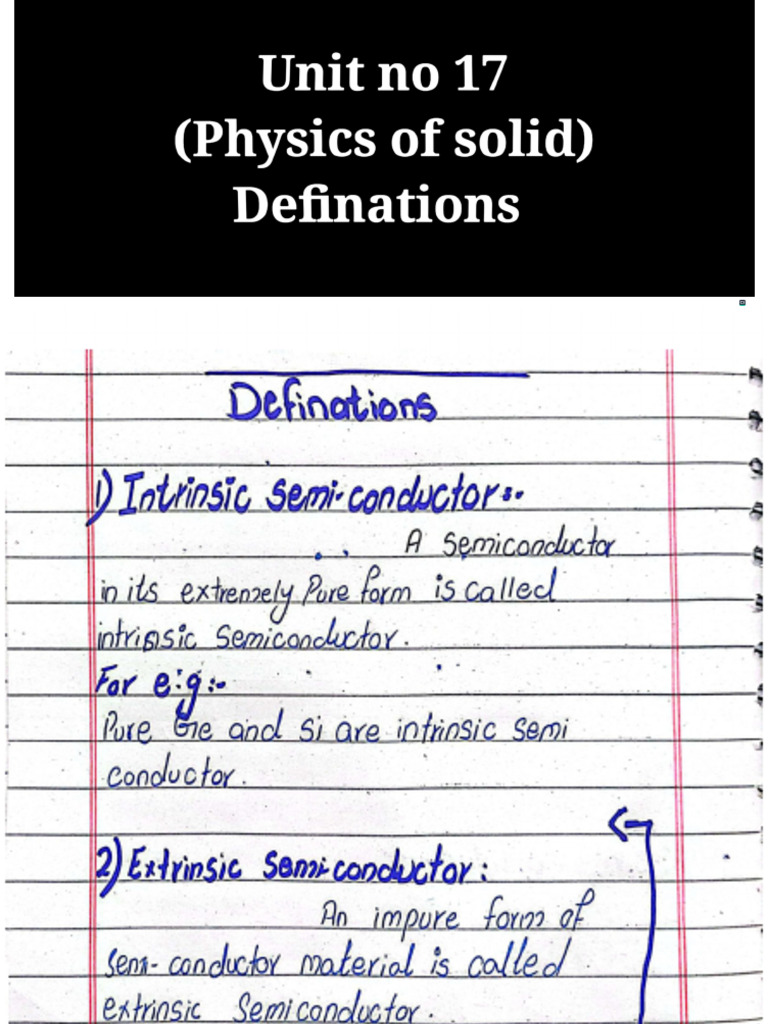 Unit no 17
(Physics of solid)
Definations
Definations
1) Intrinsic semi-conductor:-
A semiconductor
in its extremely Pure form is called
intrinsic semiconductor.
For e:g:-
Pure Ge and Si are intrinsic semi
conductor.
2) Extrinsic semi-conductor:
An impure form of
semi-conductor material is called
extrinsic semiconductor.